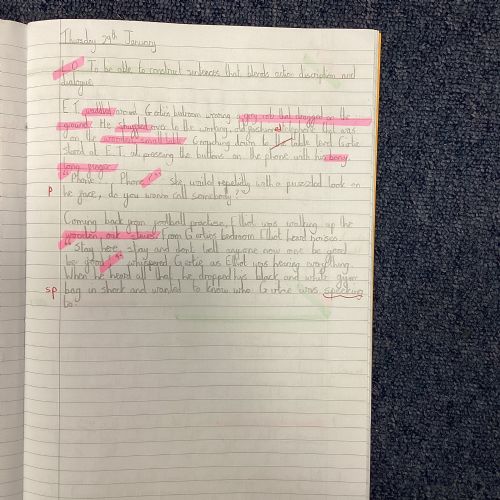 Thursday 29th January
L.O. To be able to construct sentences that blends action discription and
dialogue
E.T. waddled around Gertie's bedroom wearing a grey rob that dragged on the
ground. He snuggled over to the working, old fashioned phone that was
on the wooden small table. Crouching down to the table level Gertie
stared at E.T. at pressing the buttons on the phone with his bony
long finger
"Phone, Phone," she waited repeatidly with a puzzled look on
P
his face, do you wanna call somebody?
Coming back from football practise, Elliot was walking up the
wooden, oak stairs from Gerties bedroom Elliot heard
"Stay here, stay and dont tell anyone now one be good
be good" whispered Gertie as Elliot was hearing everything.
When he heard all that, he dropped his black and white gym
sp
bag in shock and wanted to know who Gertie was specking
to.